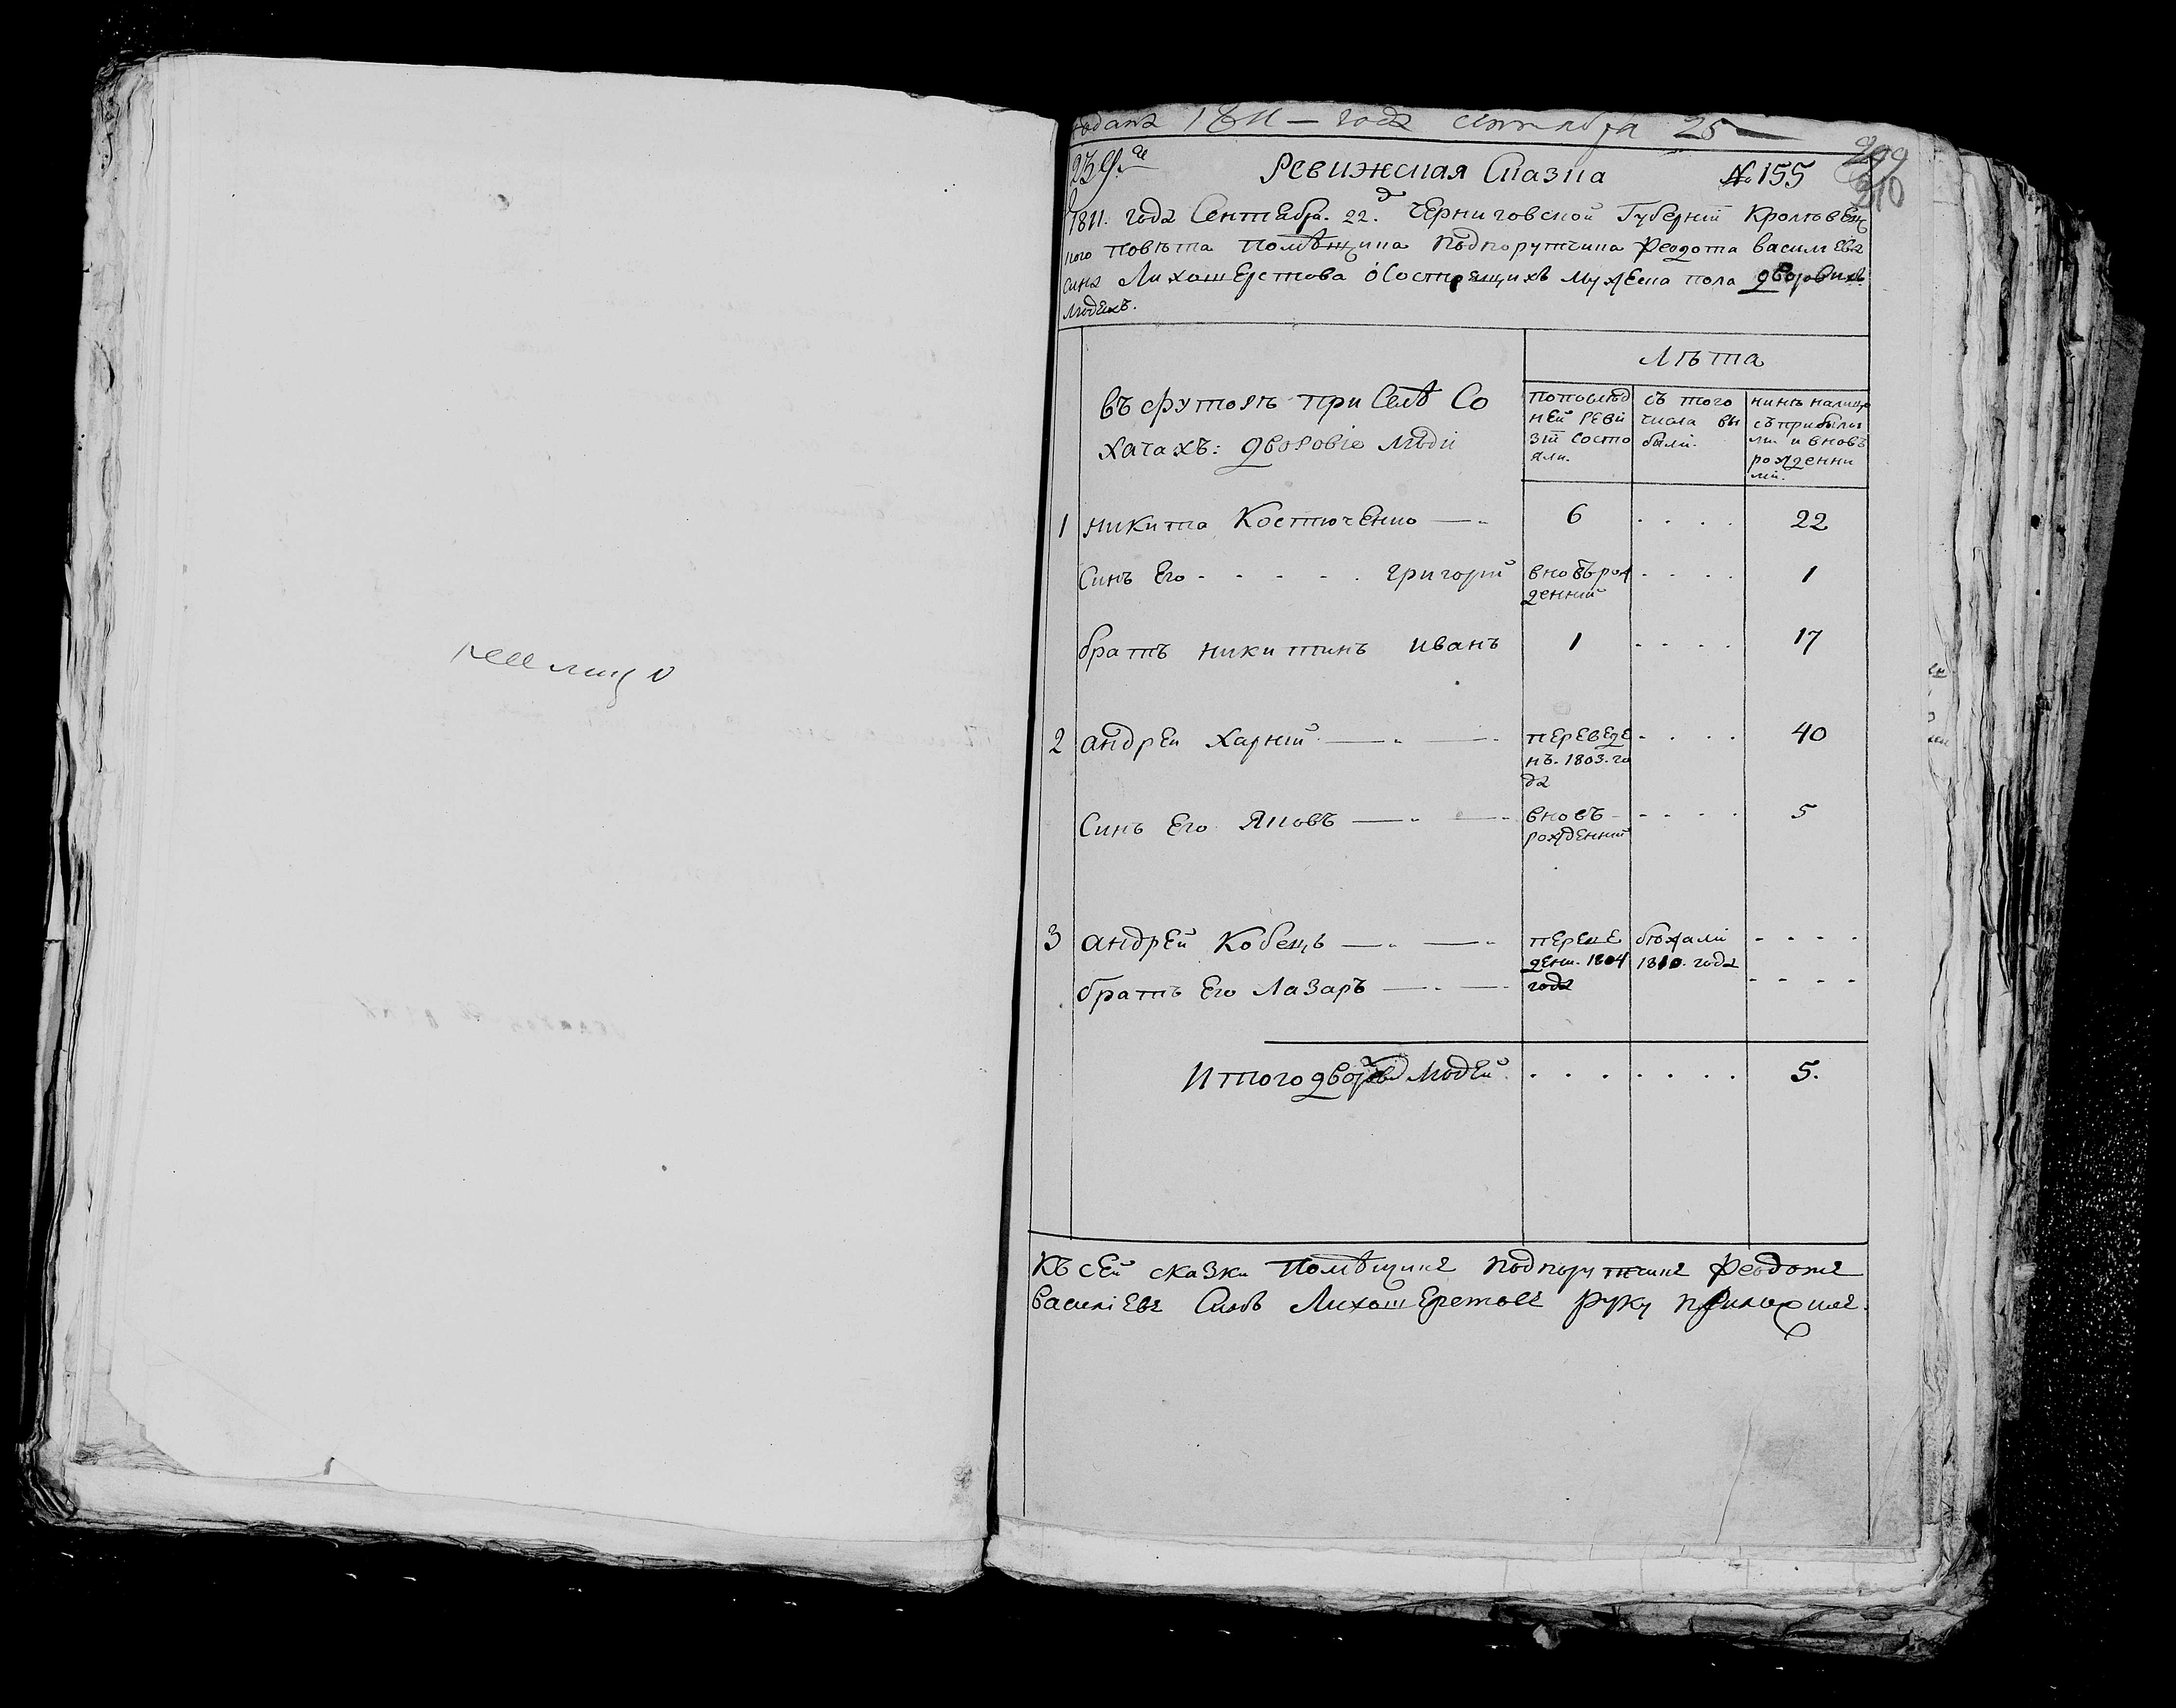 подана 1811 – года сентября 25
Ревижская Сказка № 155
209
310
1811. года Сентября. 22. д Черниговской Губернiи Кролевец
кого повѣта помѣщика Подпорутчика Феодота василiева
сина Лихошерстова о состоящихъ мужеска пола дворовихъ
людехъ.
Лѣта
въ футорѣ при Селѣ Со
хачахъ: дворовiе люди
попослѣд
ней реви
зiи состо
яли.
съ того
числа вы
были.
нинѣ налицо
съ прибыли
ми и вновъ
рожденни
ми.
1 никита Костюченко — 6 . . . . 22
Синъ Его - - - - - григорiй вновърож . . . . 1
деннiй
братъ никитинъ иванъ 1 . . . . 17
2 андрей харнiй — переведе . . . . 40
нъ. 1803. го
да
Синъ Его Яковъ — вновъ . . . . 5
рожденнiй
3 андрей Кобецъ — бѣжали . . . .
1804 1810. года
братъ Его Лазаръ — года . . . .
Итого дворових людей . . . . . . . 5.
Къ сей сказки Помѣщикъ подпорутчикъ Феодотъ
василiевъ Синъ Лихошерстовъ руку приложилъ.